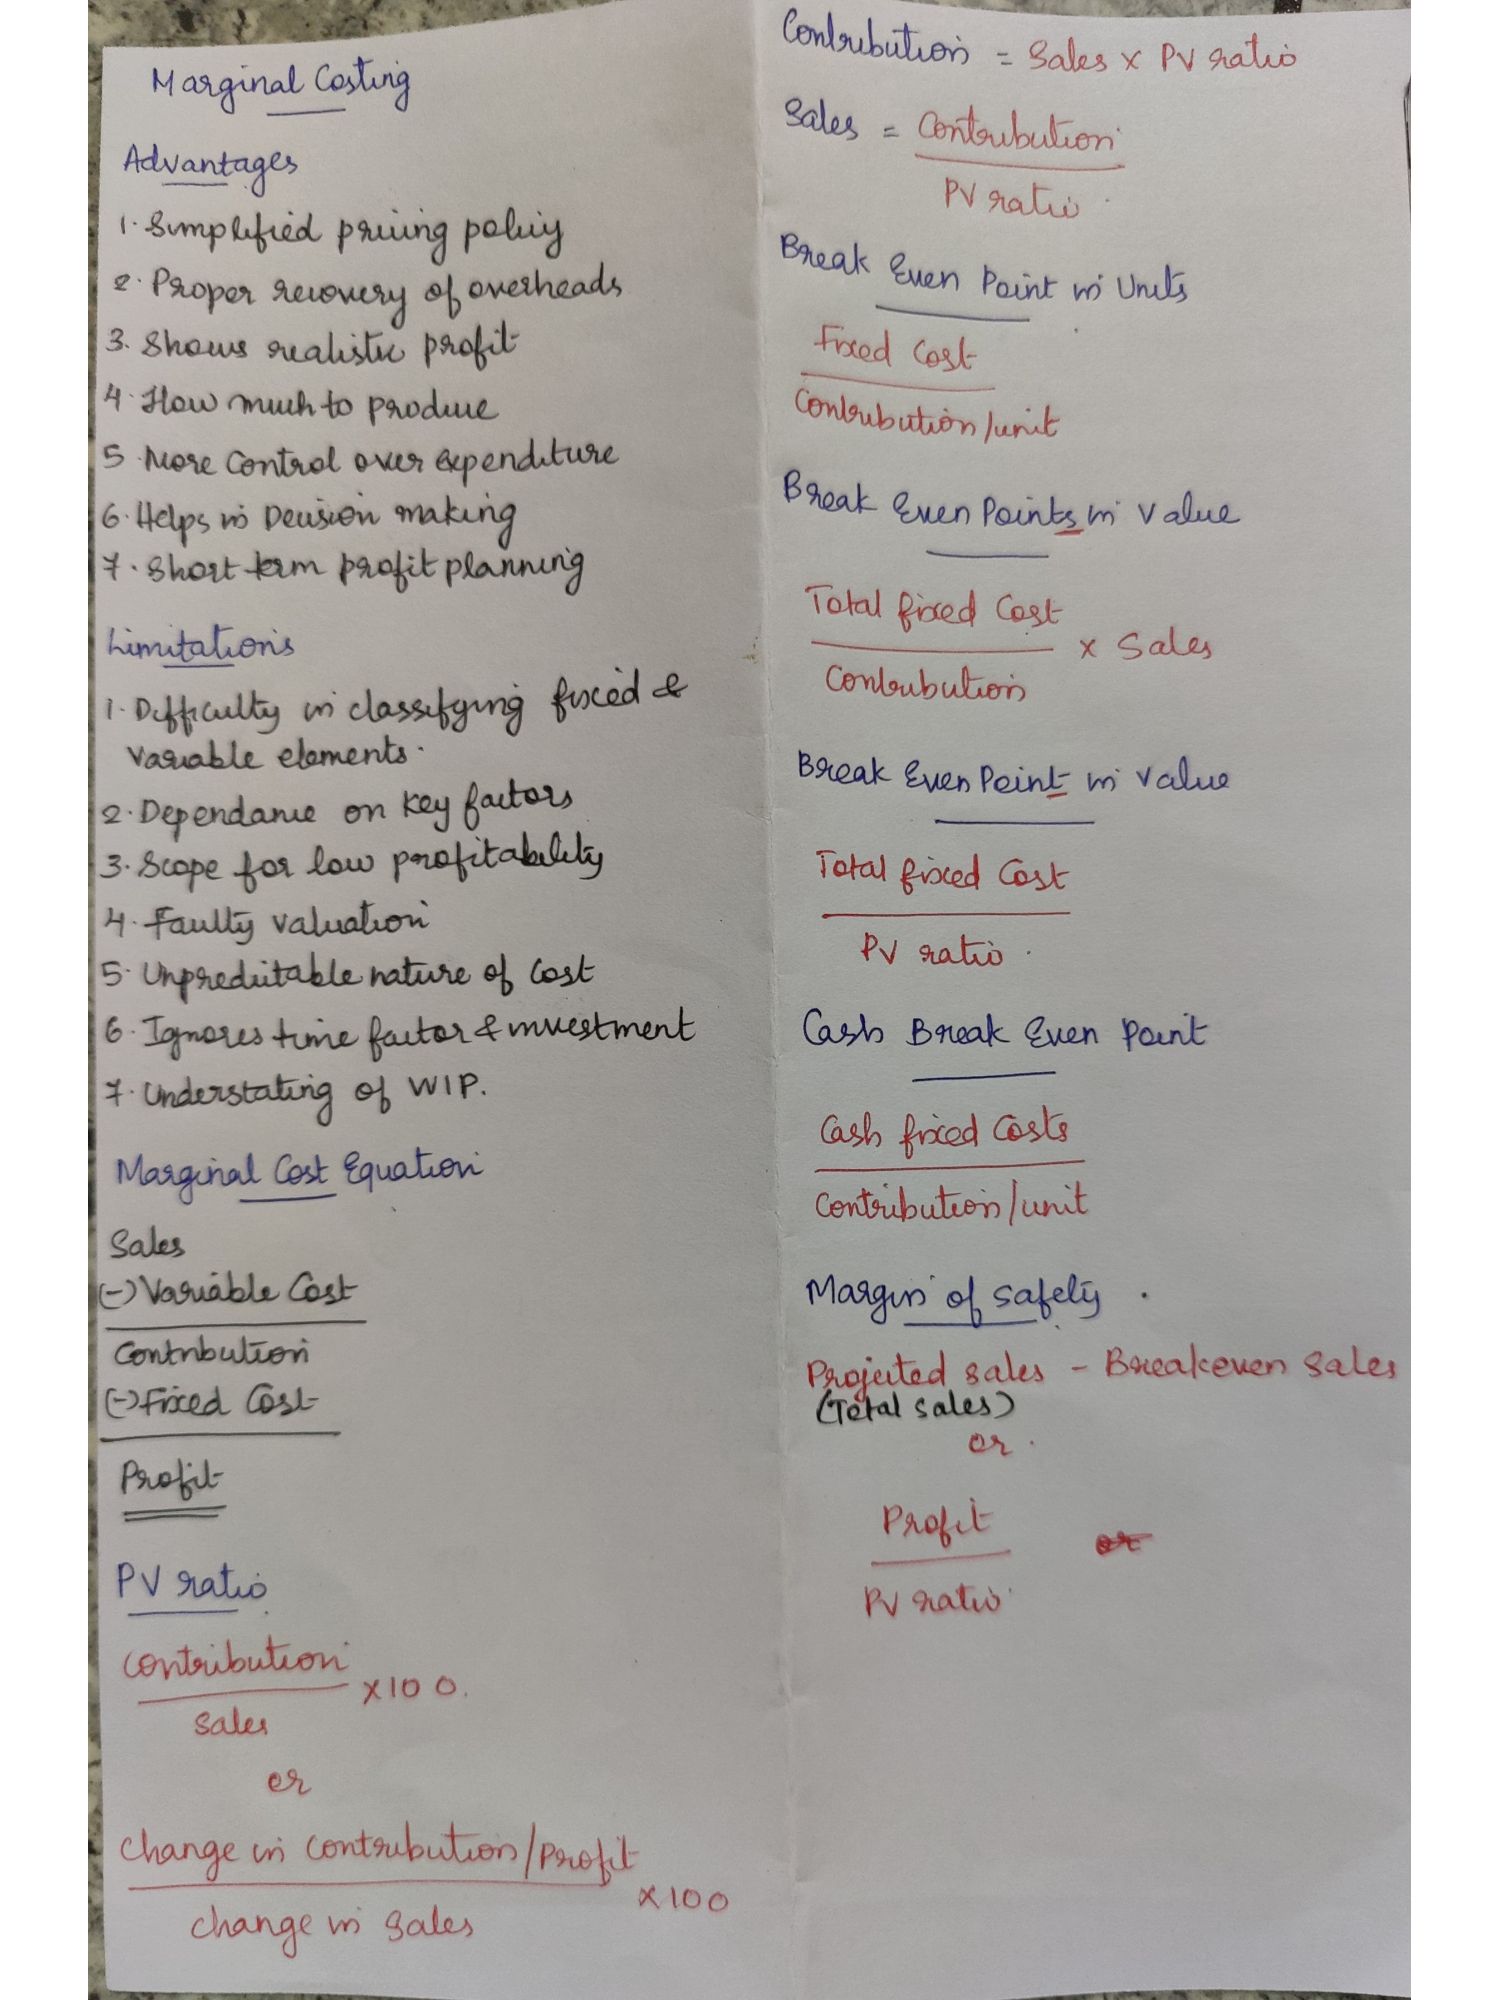 Marginal Costing
Advantages
1. Simplified pricing policy
2. Proper recovery of overheads
3. Shows realistic profit
4. How much to produce
5. More control over expenditure
6. Helps in Decision making
7. Short term profit planning
Limitations
1. Difficulty in classifying fixed &
variable elements.
2. Dependance on key factors
3. Scope for low profitability
4. Faulty valuation
5. Unpredictable nature of cost
6. Ignores time factor & investment
7. Understating of WIP.
Marginal Cost Equation
Sales
(-) Variable Cost
Contribution
(-) Fixed Cost
Profit
PV ratio
Contribution
x100.
Sales
or
change in contribution/profit
x100
change in sales
Contribution = Sales x PV ratio
Sales = Contribution
PV ratio.
Break Even Point in Units
Fixed Cost
Contribution/unit
Break Even Points in Value
Total fixed Cost
x Sales
Contribution
Break Even Point in Value
Total fixed Cost
PV ratio.
Cash Break Even Point
Cash fixed Costs
Contribution/unit
Margin of safety.
Projected sales - Breakeven sales
(Total sales)
or.
Profit
or
PV ratio